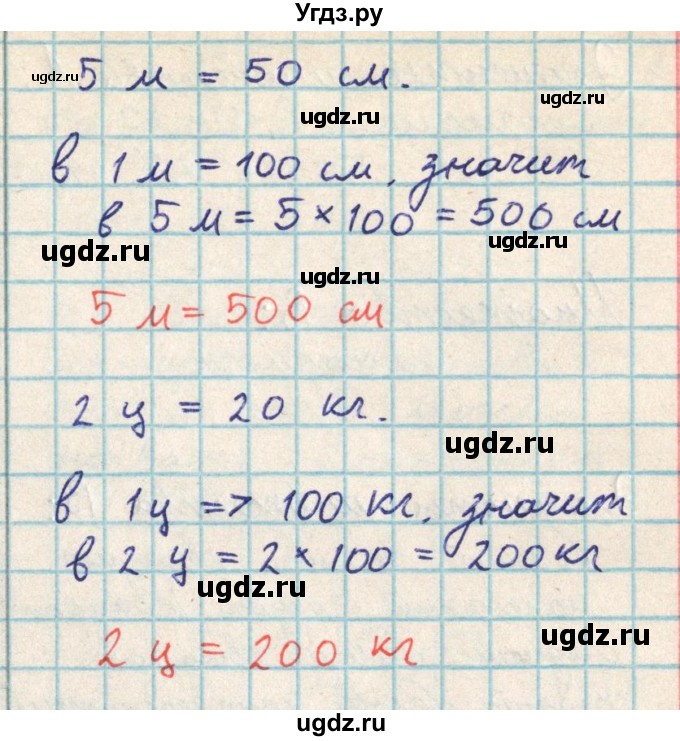 Угдз.ру
ugdz.ru
5 м = 50 см.
ugdz.ru
в 1 м = 100 см, значит
в 5 м = 5 × 100 = 500 см
ugdz.ru
ugdz.ru
ugdz.ru
5 м = 500 см
2 ц = 20 кг.
ugdz.ru
в 1ц => 100 кг, значит
в 2 ц = 2 × 100 = 200 кг
ugdz.ru
ugdz.ru
2 ц = 200 кг
ugdz.ru